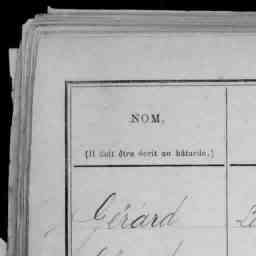 NOM.
(Il doit être écrit en bâtarde.)
Gérard